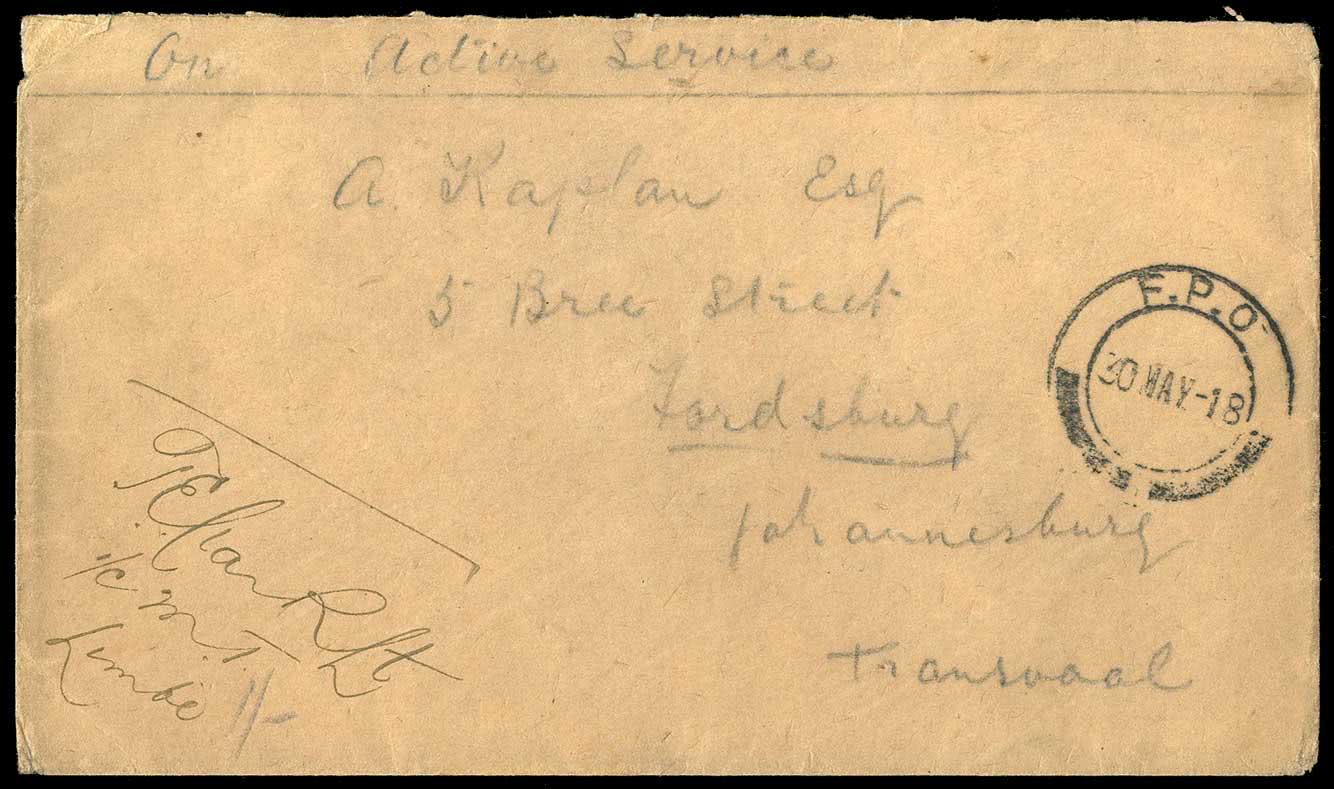 On Active Service
A. Kaplan Esq
5 Bree Street
Fordsburg
Johannesburg
Transvaal
F.P.O
30 MAY-18
Lt
I/c M.T.
Limbe
1/-